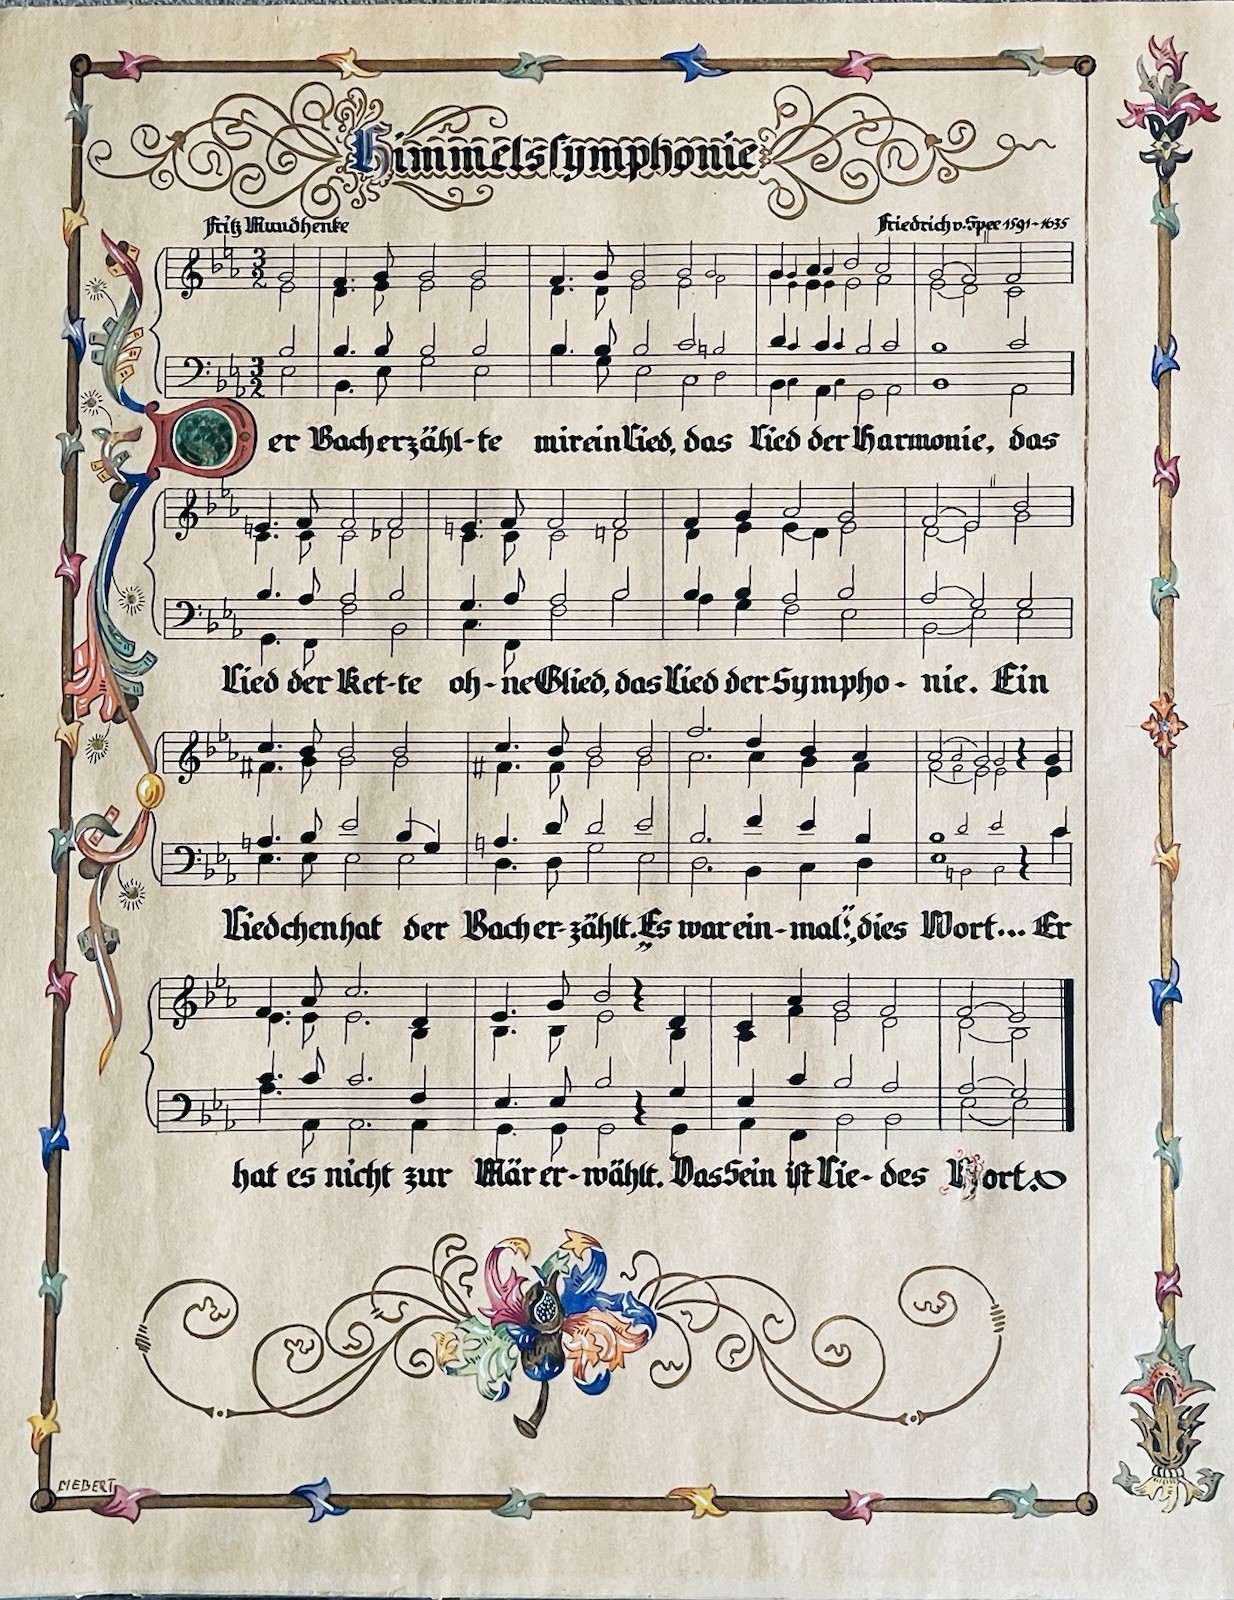 Himmelssymphonie
Fritz Mundhenke Friedrich v. Spee 1591-1635
Der Bach erzähl-te mir ein Lied, das Lied der Harmonie, das
Lied der Ket-te oh-ne Glied, das Lied der Sympho- nie. Ein
Liedchen hat der Bach er-zählt. „Es war ein-mal!", dies Wort... Er
hat es nicht zur Mär er-wählt. Das Sein ist Lie-des Wort.